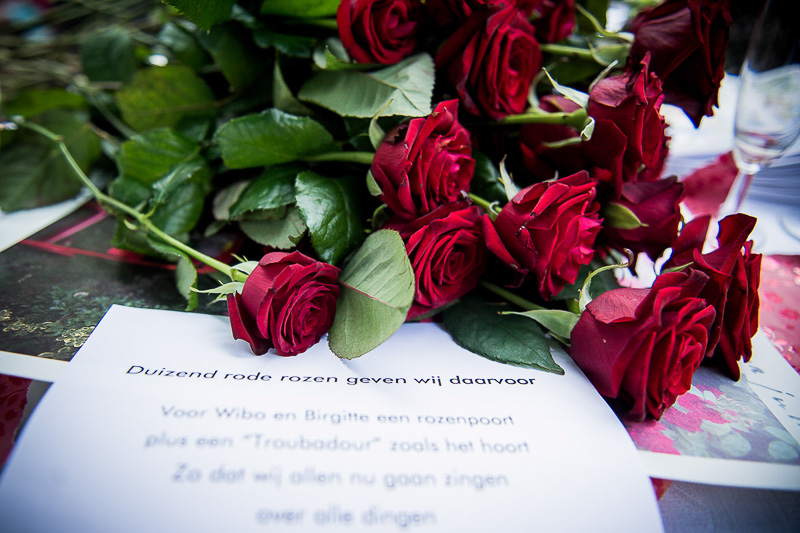 Duizend rode rozen geven wij daarvoor
Voor Wibo en Birgitte een rozenpoort
plus een "Troubadour" zoals het hoort
Zo dat wij allen nu gaan zingen
over alle dingen